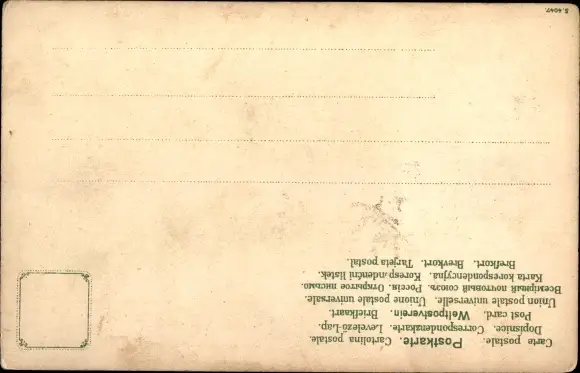 Carte postale. Postkarte. Cartolina postale.
Dopisnice. Correspondenzkarte. Levelező-Lap.
Post card. Weltpostverein. Briefkaart.
Union postale universelle. Unione postale universale.
Всемірный почтовый союзъ. Россія. Открытое письмо.
Karta korespondencyjna. Korespondenční lístek.
Brefkort. Brevkort. Tarjeta postal.
S. 4047